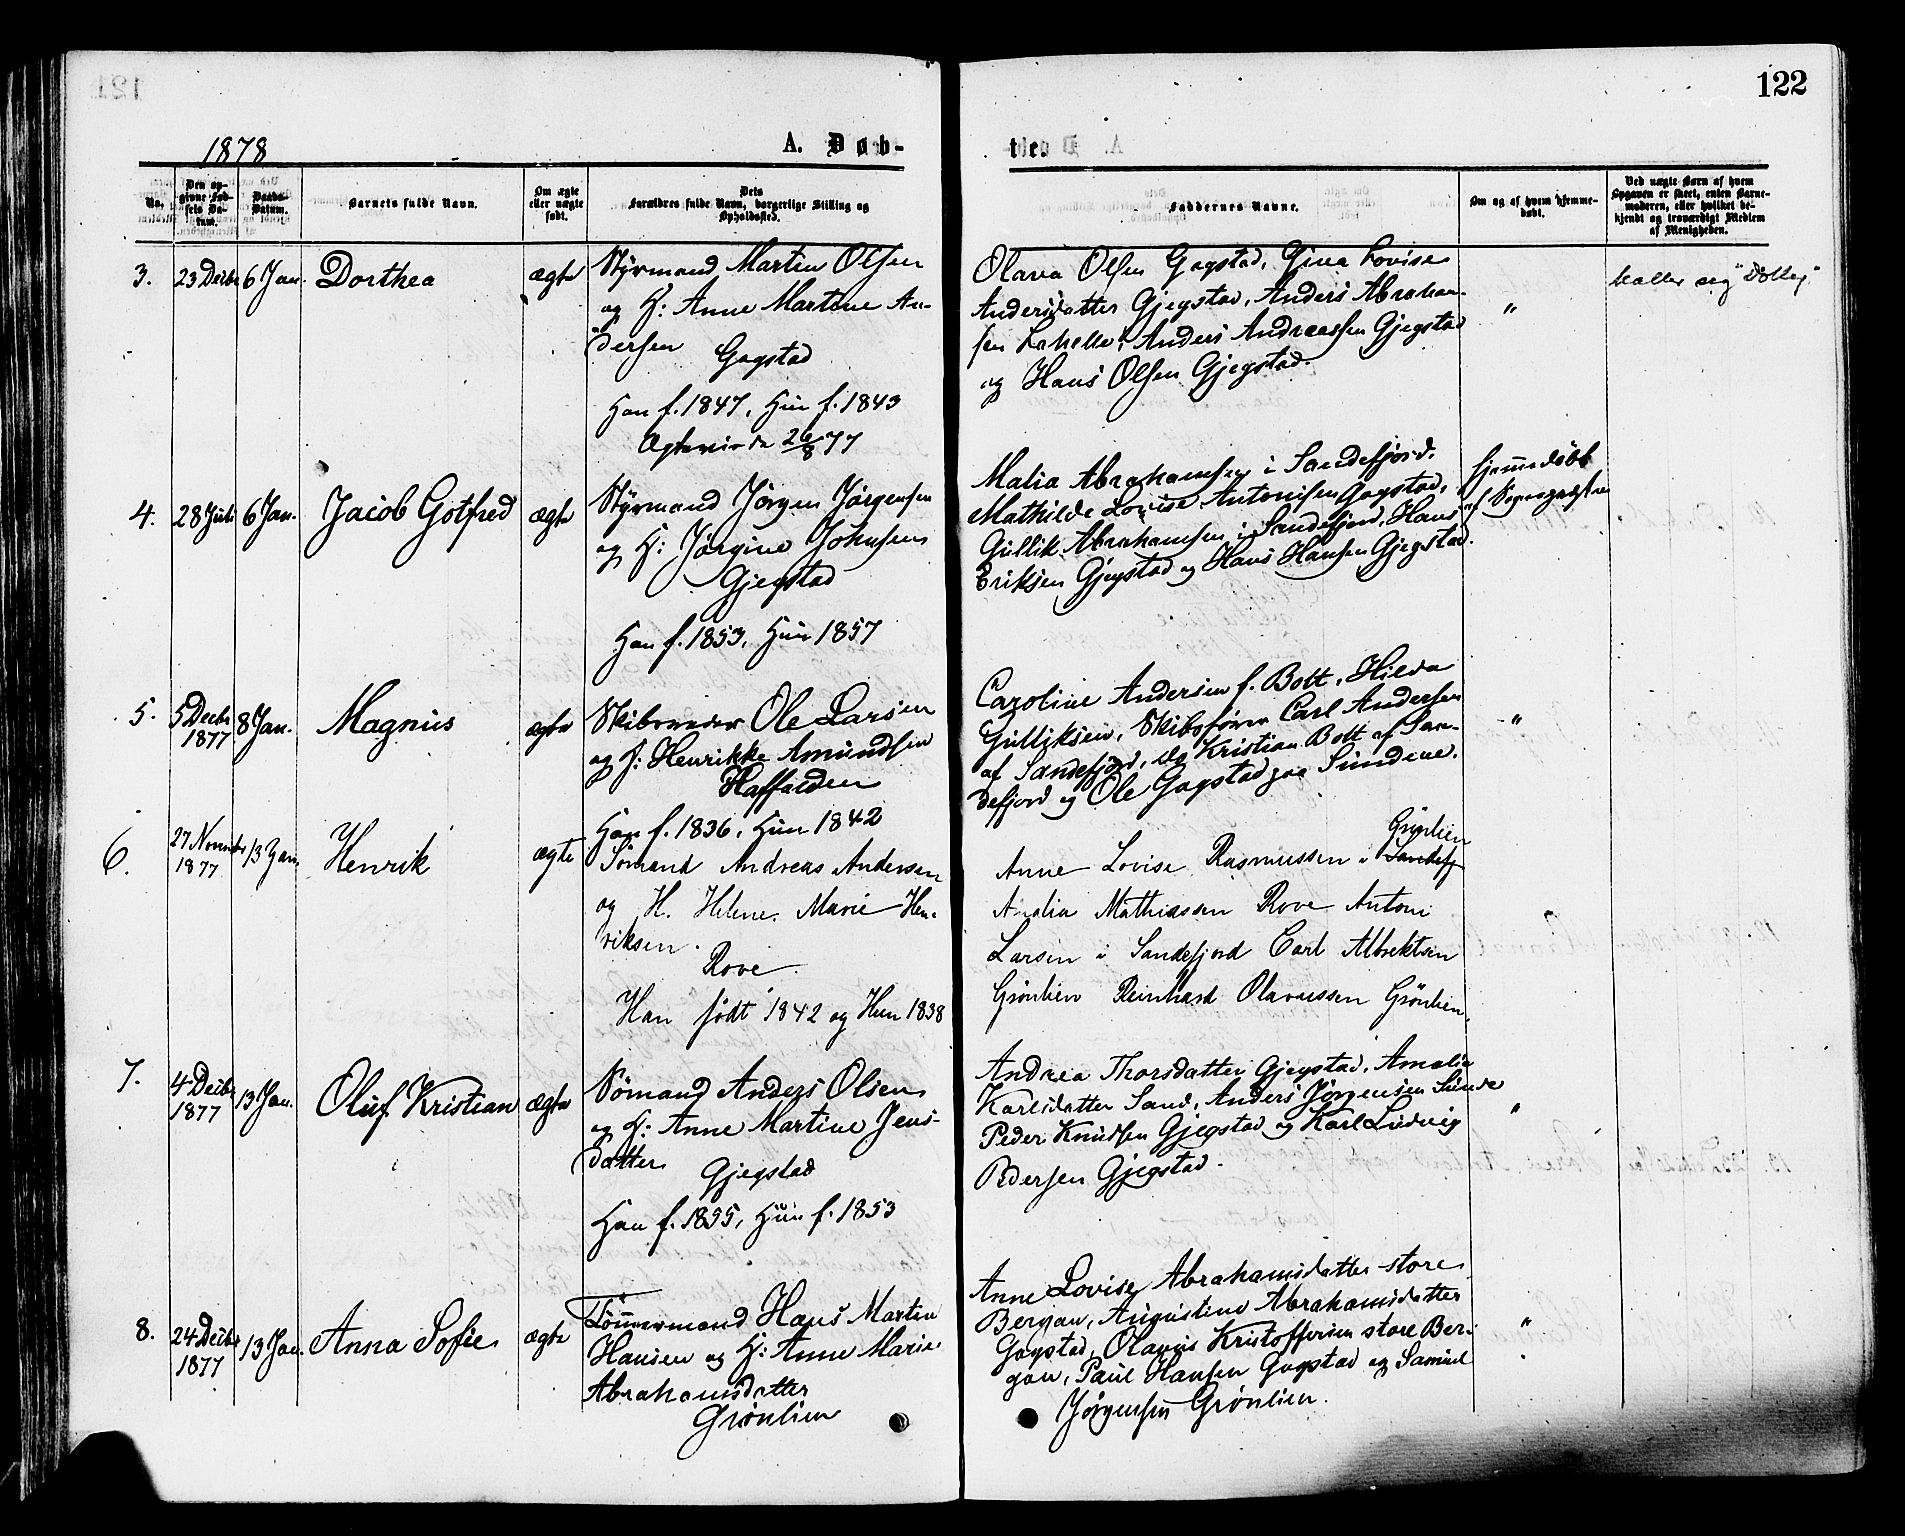 122
1878
A. Døb-
te.
No.
Den op-
givne Fød-
sels Da-
tum.
Daabs-
Datum.
Barnets fulde Navn.
Om ægte
eller uægte
født.
Dets
Forældres fulde Navn, borgerlige Stilling og
Opholdssted.
Faddernes Navne.
Om og af hvem hjemme-
døbt.
Ved uægte Børn af hvem
Opgaven er skeet, enten Barne-
moderen, eller hvilket be-
kjendt og troværdigt Medlem
af Menigheden.
3.
23 Decbr
6 Jan.
Dorthea
ægte
Styrmand Martin Olsen
og H: Anne Martine An-
dersen
Gogstad
Han f. 1847, Hun f. 1843
Ægteviede 26/8 77
Olava Olsen Gogstad, Gina Lovise
Andersdatter Gjegstad, Anders Abraham-
sen Lahelle, Anders Andreassen Gjegstad
og Hans Olsen Gjegstad.
"
kaller seg "Dolley"
4.
28 Juli
6 Jan.
Jacob Gotfred
ægte
Styrmand Jørgen Jørgensen
og H: Jørgine Johnsen
Gjegstad
Han f. 1853, Hun 1857
Malia Abrahamsen i Sandefjord.
Mathilde Lovise Antonisen Gogstad,
Gullik Abrahamsen i Sandefjord, Hans
Eriksen Gjegstad og Hans Hansen Gjegstad.
hjemmedøbt
af Sognepræsten
5.
5 Decbr
1877
8 Jan.
Magnus
ægte
Skibsreder Ole Larsen
og H: Henrikke Amundsen
Haffalden
Han f. 1836, Hun 1842
Caroline Andersen f. Bott, Hilda
Gulliksen, Skibsfører Carl Andersen
af Sandefjord, do Kristian Bott af San-
defjord og Ole Gogstad paa Sundene.
"
6.
27 Novmbr
1877
13 Jan.
Henrik
ægte
Sømand Andreas Andersen
og H. Helene Marie Hen-
riksen.
Rove
Han født 1842 og Hun 1838
Grönlien
Anne Lovise Rasmussen i Sandefj
Analia Mathiassen Rove Antoni
Larsen i Sandefjord Carl Albrektsen
Grönlien Reinhard Olavussen Grönlien.
"
7.
4 Decbr
1877
13 Jan.
Oluf Kristian
ægte
Sømand Anders Olsen
og H: Anne Martine Jens-
datter
Gjegstad
Han f. 1855, Hun f. 1853
Andrea Thorsdatter Gjegstad, Amalie
Karlsdatter Sand, Anders Jørgensen Sunde
Peder Knudsen Gjegstad og Karl Ludvig
Pedersen Gjegstad.
"
8.
24 Decbr
1877
13 Jan.
Anna Sofie
ægte
Tømmermand Hans Martin
Hansen og H: Anne Marie
Abrahamsdatter
Grønlien
Anne Lovise Abrahamsdatter store
Bergan, Augustine Abrahamsdatter
Gogstad, Olavus Kristoffersen store Ber-
gan, Paul Hansen Gogstad og Samuel
Jørgensen Grønlien.
"